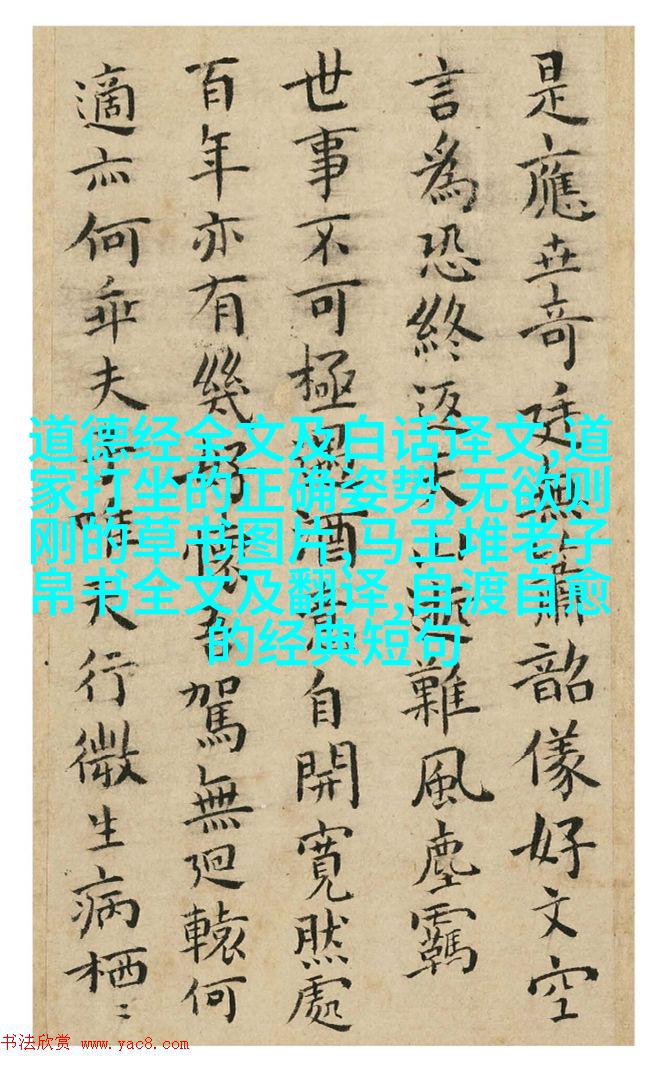 是應世奇撫簫韶儀好文空
言爲恐終返大難風塵羈
世事不可極酒自開寬然處
百年亦有幾好懷吾駕無迴轅何
適亦何乖夫天行微生病栖〻
道德经全文及白话译文,道
家打坐的正确姿势,无欲则
刚的草书图片,马王堆老子
帛书全文及翻译,自渡自愈
的经典短句
书法欣赏 www.yac8.com